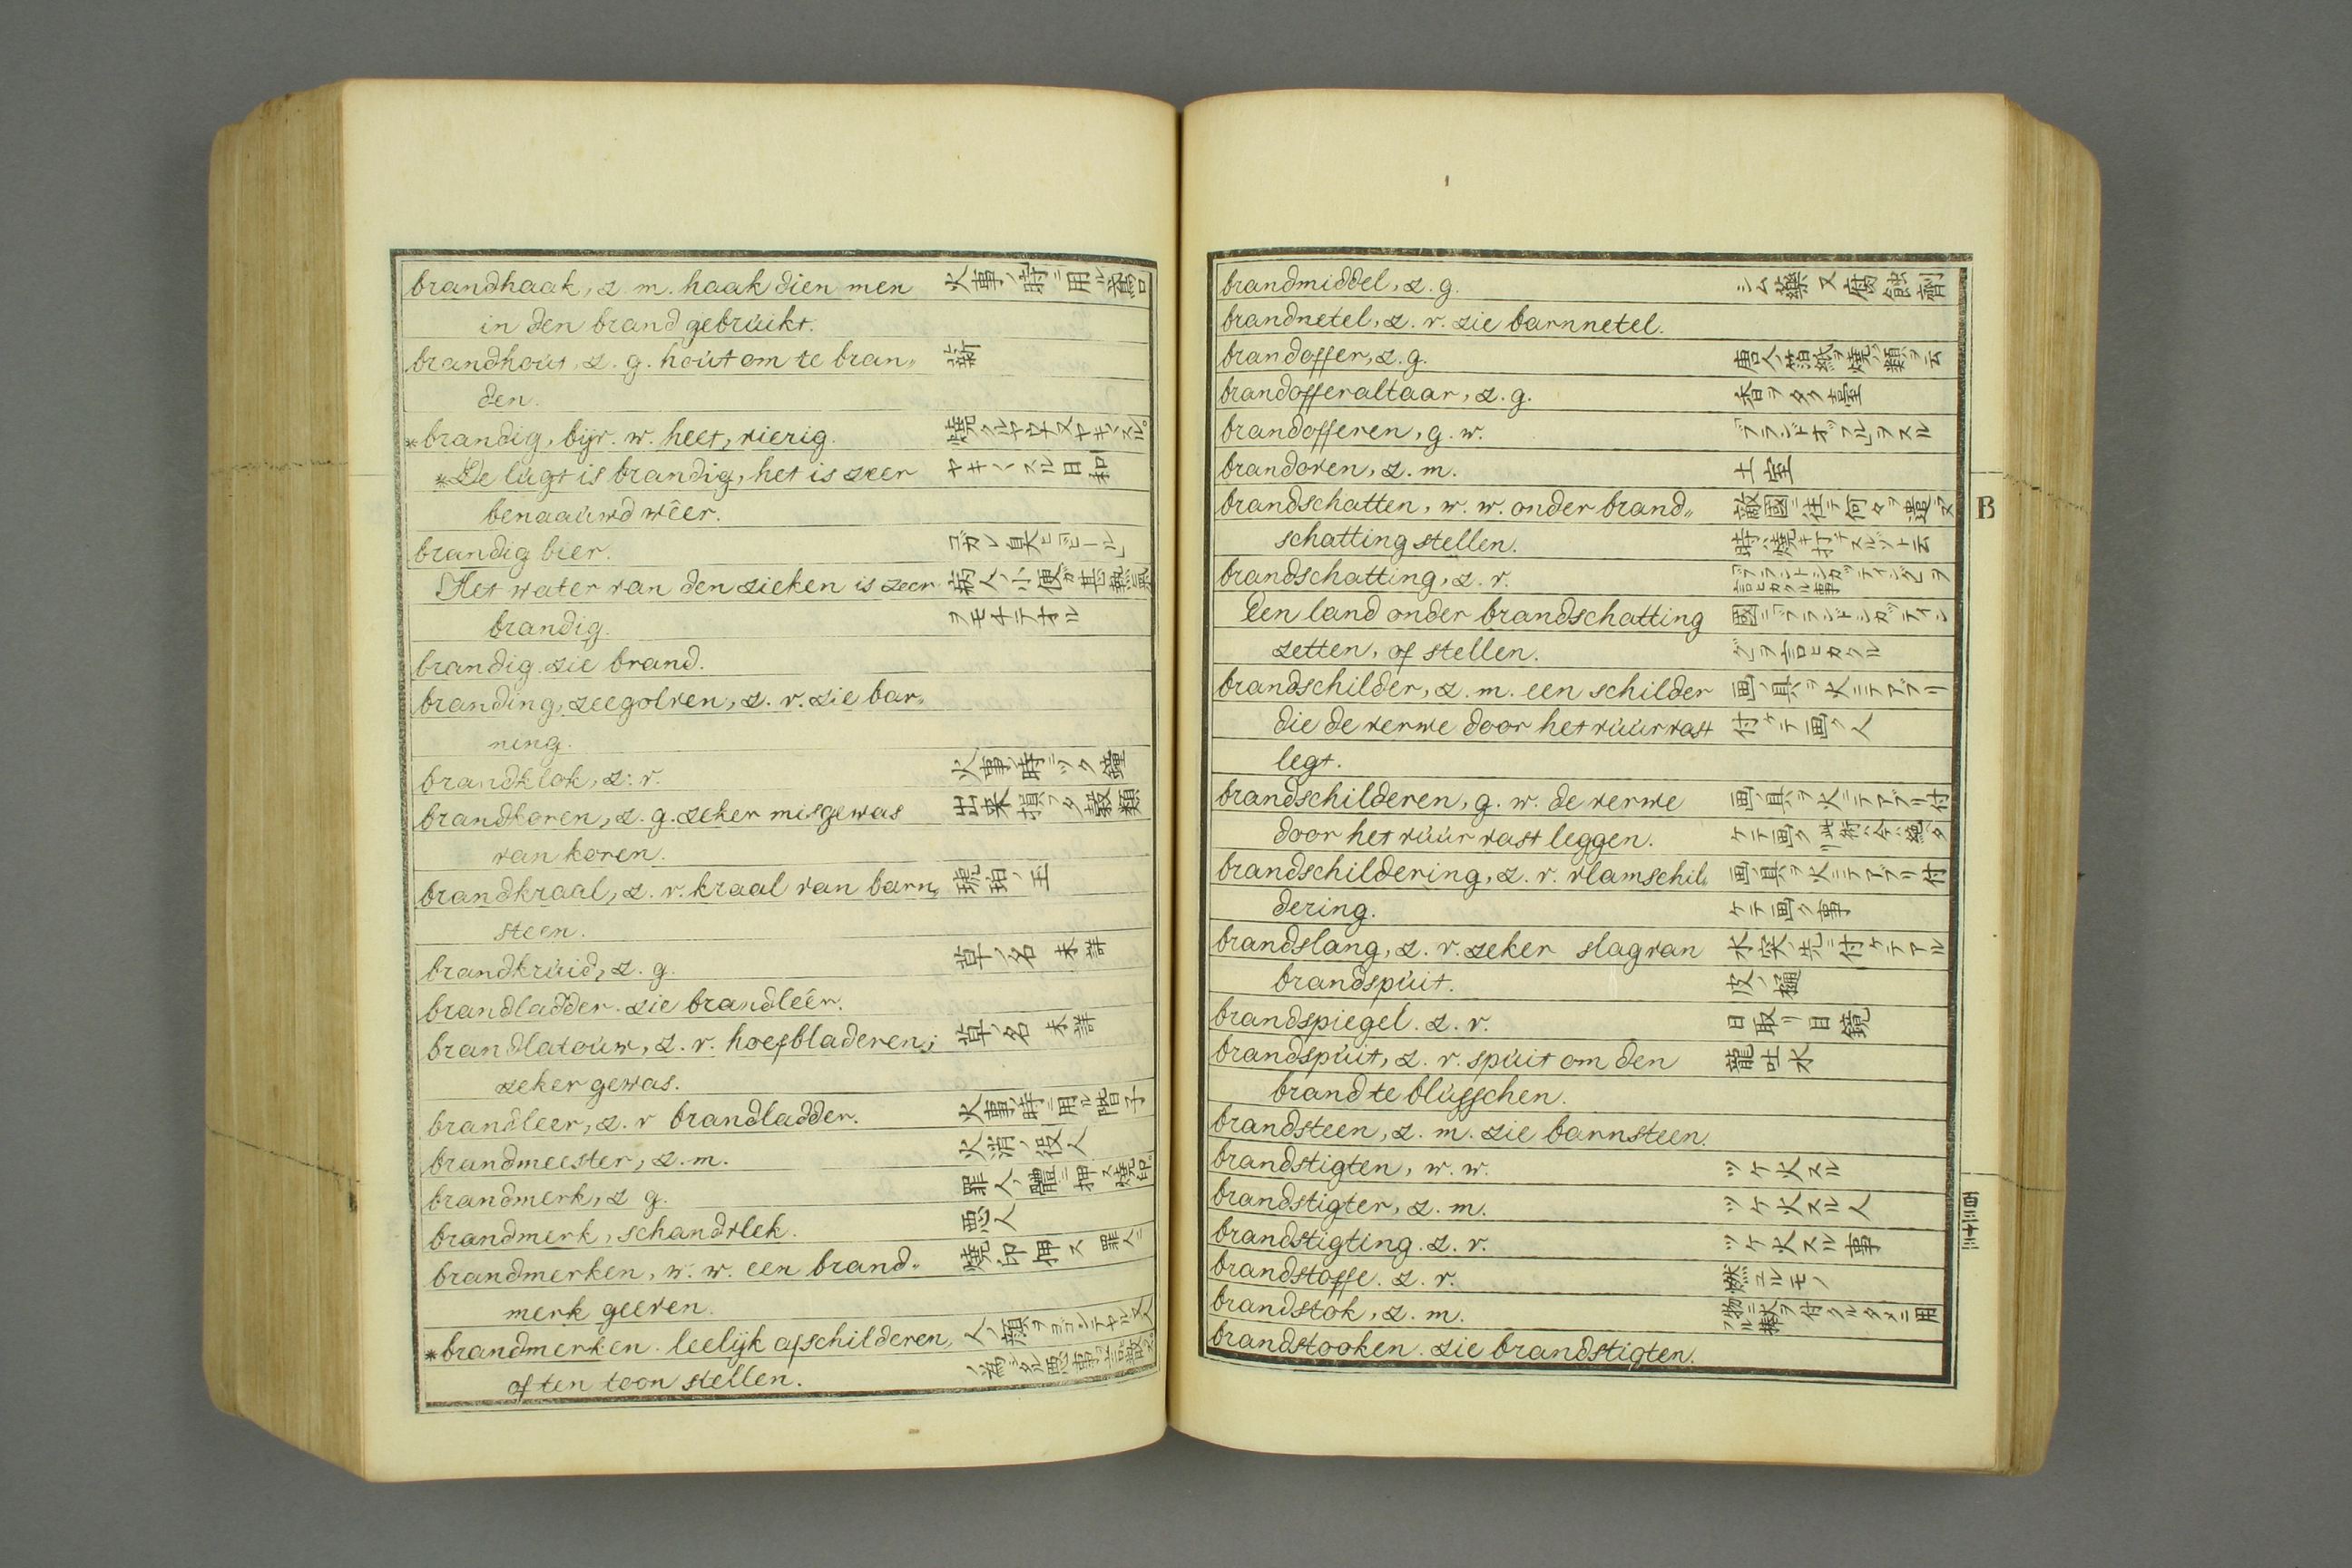 brandhaak, z. m. haak dien men 火事ノ時ニ用ル鳶口
in den brand gebrúikt.
brandhoút, z. g. hoút om te bran„ 薪
den.
*brandig, bijv. w. heet, vierig.
*De lúgt is brandig, het is zeer ヤキ〱スル日和
benaaúwd wêer.
brandig bier.
Het water van den zieken is zeer 病人ノ小便ガ甚熱氣
brandig. ヲモチテオル
brandig. zie brand.
branding, zeegolven, z. v. zie bar„
ning.
brandklok, z. v. 火事ノ時ニツク鐘
brandkoren, z. g. zeker misgewas 出来損フタ穀類
van koren.
brandkraal, z. v. kraal van barn„ 琥珀ノ玉
steen.
brandkrúid, z. g. 草ノ名 未詳
brandladder. zie brandleêr.
brandlatoúw, z. v. hoefbladeren; 草ノ名 未詳
zeker gewas.
brandleer, z. v brandladder. 火事ノ時ニ用ル階子
brandmeester, z. m. 火消ノ役人
brandmerk, z g. 罪人ノ體ニ押ス焼印
brandmerk, schandvlek. 悪人
brandmerken, w. w. een brand„ 焼印押ス 罪人ニ
merk geeven.
*brandmerken. leelijk afschilderen,
of ten toon stellen.
brandmiddel, z. g. シム藥又腐蝕劑
brandnetel, z. v. zie barnnetel.
brandoffer, z. g. 唐人ノ箔紙ヲ焼ク類ヲ云
brandofferaltaar, z. g. 香ヲタク臺
brandofferen, g. w. 「ブランドオッフル」ヲスル
brandoven, z. m. 土室
brandschatten, w. w. onder brand„ 敵國ニ往テ何々ヲ遣ラヌ
schatting stellen. 時ハ燒キ打チスルゾト云
brandschatting, z. v. 「ブランドシカッティング」ヲ言ヒカクル事
Een land onder brandschatting 國ニ「ブランドシカッティン
zetten, of stellen. グ」ヲ言ヒカクル
brandschilder, z. m. een schilder 画ノ具ヲ火ニテアブリ
die de verwe door het vúúr vast 付ケテ画ク人
legt.
brandschilderen, g. w. de verwe 画ノ具ヲ火ニテアブリ付
door het vúúr vast leggen. ケテ画ク
brandschildering, z. v. vlamschil„ 画ノ具ヲ火ニテアブリ付
dering. ケテ画ク事
brandslang, z. v. zeker slag van 水突ノ先ニ付ケテアル
brandspúit. 皮ノ樋
brandspiegel. z. v. 日取リ目鏡
brandspúit, z. v. spúit om den 龍吐水
brand te blússchen.
brandsteen, z. m. zie barnsteen.
brandstigten, w. w. ツケ火スル
brandstigter, z. m. ツケ火スル人
brandstigting. z. v. ツケ火スル事
brandstoffe. z. v. 燃ユルモノ
brandstok, z. m. 物ニ火ヲ付クルタメニ用フル棒
brandstooken. zie brandstigten.
B
百三十三